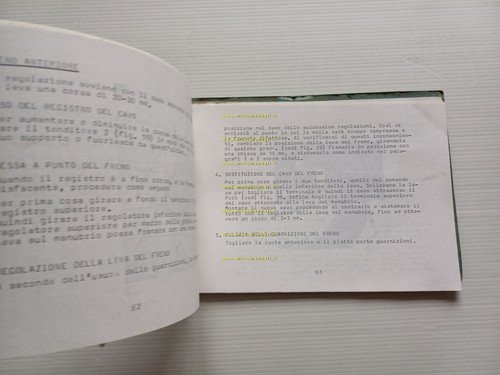 ENO ANTERIORE
regolazione avviene con il dado
leva una corsa di 20-30 mm.
SO DEL REGISTRO DEL CAVO
r aumentare o diminuire la corsa
are il tenditore 2 (fig. 59)
suo supporto o fuoriesca da
ESSA A PUNTO DEL FRENO
uando il registro è a fine corsa, e la
disfacente, procedere come segue
er prima cosa girare a fondo il tenditore
registro superiore.
uindi girare il regolatore inferiore
egolatore superiore per mezzo
leva sul manubrio possa frenare con una
REGOLAZIONE DELLA LEVA DEL FRENO
A seconda dell'usura delle guarnizioni, la
62
posizione nel caso delle successive regolazioni. Così si
arriverà al punto in cui la molla sarà troppo compressa e
la frenata difettosa. Al verificarsi di questi inconvenien-
ti, cambiare la posizione della leva del freno, girandola
di qualche grado. (vedi fig. 22) fissarla in posizione con
una chiave da 10 mm. e sistemarla come indicato nei para-
grafi 1 e 2 sopra citati.
4. SOSTITUZIONE DEL CAVO DEL FRENO
Per prima cosa girare i due tenditori, quello del comando
sul manubrio e quello inferiore della leva. Sollevare la le-
va per togliere il terminale e quindi il cavo attraverso il
foro (vedi fig. 9), infine togliere il terminale superiore
del cavo attaccato alla leva del freno.
Montare il nuovo cavo procedendo al contrario e sistemare il
tutto con il registro della leva del manubrio, fino ad otte-
nere un gioco di 2-3 mm.
5. PULIZIA DELLE GUARNIZIONI DEL FRENO
Togliere la ruota anteriore e il piatto porta guarnizioni,
63